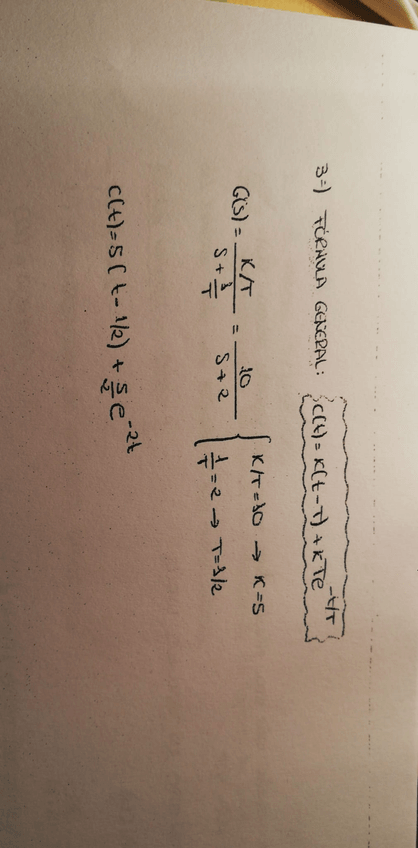 3-) FÓRMULA GENERAL: c(t) = K(t - T) + KTe^{-t/T}
G(s) = \frac{K/T}{S + \frac{1}{T}} = \frac{10}{S + 2} { K/T = 10 → K = 5
\frac{1}{T} = 2 → T = 1/2
c(t) = 5(t - 1/2) + \frac{5}{2}e^{-2t}